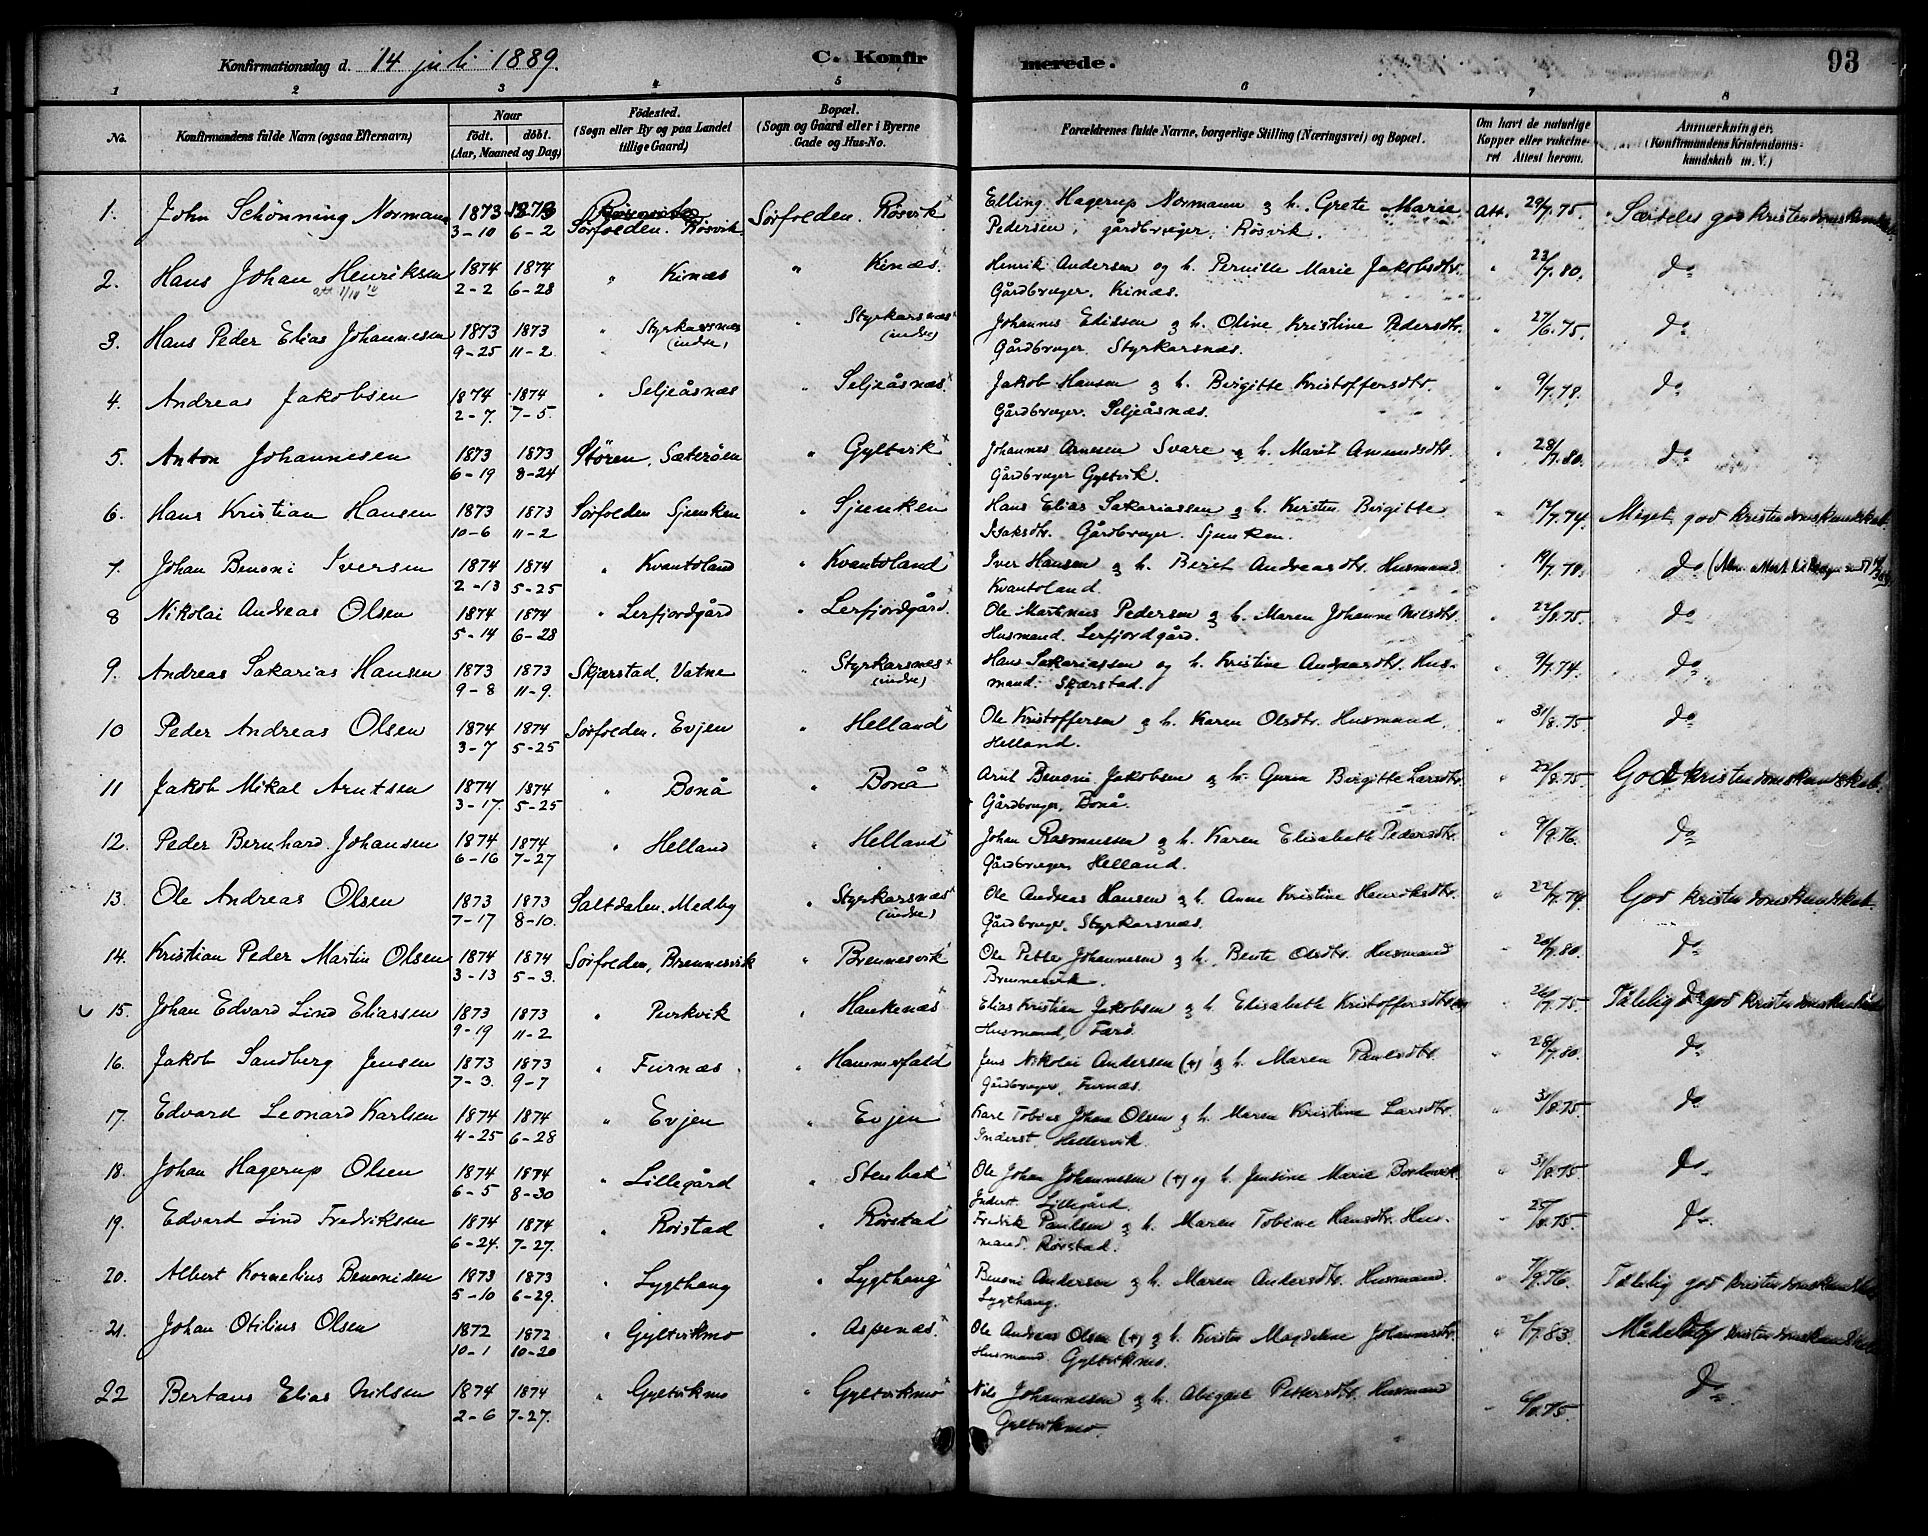 Konfirmationsdag d. 14 juli 1889. C. Konfirmerede. 93
1 2 3 4 5 6 7 8
No. Konfirmandens fulde Navn (ogsaa Efternavn) Naar födt. döbt. (Aar, Maaned og Dag) Födested. (Sogn eller By og paa Landet tillige Gaard) Bopæl. (Sogn og Gaard eller i Byerne Gade og Hus-No. Forældrenes fulde Navne, borgerlige Stilling (Næringsvei) og Bopæl. Om havt de naturlige Kopper eller vaksineret Attest herom. Anmærkninger. (Konfirmandens Kristendomskundskab m. V.)
1. John Schönning Normann 1873 3-10 1873 6-2 Sörfolden. Rösvik Sörfolden. Rösvik Elling Hagerup Normann & h. Grete Marie
Pedersen, gårdbruger, Rösvik. Att. 29/7.75. Særdeles god kristendomskundskab
2. Hans Johan Henriksen 1874 2-2 1874 6-28 " Kinæs " Kinæs. Henrik Andersen og h. Pernille Marie Jakobsdtr.
Gårdbruger. Kinæs. " 23/7.80. do
3. Hans Peder Elias Johannesen 1873 9-25 1873 11-2 " Styrkarsnæs (indre) " Styrkarsnæs (indre) Johannes Edissen & h. Oline Kristine Pedersdtr.
Gårdbruger Styrkarsnæs. " 27/6.75. do
4. Andreas Jakobsen 1874 2-7. 1874 7-5. " Seljeåsnæs " Seljeåsnæs Jakob Hansen & h. Birgitte Kristoffersdtr.
Gårdbruger. Seljeåsnæs. " 9/7.78. do
5. Anton Johannesen 1873 6-19 1873 8-24 Stören, Sæteröen " Gyltvik Johannes Arnesen Svare & h. Marit Amundsdtr.
Gårdbruger Gyltvik. " 28/7.80. do
6. Hans Kristian Hansen 1873 10-6 1873 11-2 Sörfolden Sjunken " Sjunken Hans Elias Sakariassen & h. Kirsten Birgitte
Isaksdtr. Gårdbruger. Sjunken. " 12/7.74. Meget god kristendomskundskab
7. Johan Benoni Iversen 1874 2-13 1874 5-25 " Kvantoland " Kvantoland Iver Hansen & h. Berit Andreasdtr. Husmand.
Kvantoland. " 19/7.78. do
8 Nikolai Andreas Olsen 1874 5-14 1874 6-28 " Lerfjordgård " Lerfjordgård Ole Martinus Pedersen & h. Maren Johanne Nilsdtr.
Husmand. Lerfjordgård. " 22/8.75. do
9. Andreas Sakarias Hansen 1873 9-8 1873 11-9. Skjærstad, Vatne " Styrkarsnæs (indre) Hans Sakariassen og h. Kristine Andreasdtr. Hus-
mand. Skjærstad. " 9/7.74. do
10 Peder Andreas Olsen 1874 3-7 1874 5-25 Sörfolden, Evjen " Helland Ole Kristoffersen & h. Karen Olsdtr. Husmand.
Helland. " 31/8.75 do
11 Jakob Mikal Arntsen 1874 3-17. 1874 5-25 " Bonå " Bonå Arnt Benoni Jakobsen & h. Guren Birgitte Larsdtr.
Gårdbruger, Bonå. " 22/8.75 God kristendomskundskab.
12. Peder Bernhard Johansen 1874 6-16 1874 7-27 " Helland " Helland Johan Rasmussen & h. Karen Elisabeth Pedersdtr.
Gårdbruger, Helland. " 9/9.76. do
13. Ole Andreas Olsen 1873 7-17 1873 8-10. Saltdalen, Medby " Styrkarsnæs (indre) Ole Andreas Hansen & h. Anne Kristine Henriksdtr.
Gårdbruger, Styrkarsnæs. " 22/7.74. God kristendomskundskab
14. Kristian Peder Martin Olsen 1874 3-13 1874 5-3. Sörfolden, Brennesvik " Brennesvik Ole Petter Johannesen & h. Bente Olsdtr. Husmand
Brennesvik. " 20/7.80. do
15. Johan Edvard Lind Eliassen 1873 9-19 1873 11-2 " Purkvik " Haukenæs Elias Kristian Jakobsen & h. Elisabeth Kristoffersdtr.
Husmand, Farö. " 26/7.75. Tålelig god kristendomskundskab
16. Jakob Sandberg Jensen 1873 7-3. 1873 9-7 " Furnæs " Hammerfald Jens Nikolai Andersen (+) & h. Maren Paulsdtr.
Gårdbruger, Furnæs. " 28/7.80. do
17. Edvard Leonard Karlsen 1874 4-25 1874 6-28 " Evjen " Evjen Karl Tobias Johan Olsen & h. Maren Kristine Larsdtr.
Inderst, Hellervik. " 31/8.75. do
18. Johan Hagerup Olsen 1874 6-5 1874 8-30 " Lillegård " Stenbak Ole Johan Johannesen (+) og h. Jensine Marie
Inderst. Lillegård. " 31/8.75 do
19. Edvard Lind Fredriksen 1874 6-24. 1874 7-27. " Rörstad " Rörstad Fredrik Paulsen & h. Maren Tobine Hansdtr. Hus-
mand. Rörstad. " 25/8.75. do
20. Albert Kornelius Benonisen 1873 5-10 1873 6-29. " Lygthaug " Lygthaug Benoni Andersen & h. Maren Andersdtr. Husmand.
Lygthaug. " 7/9.76. Tålelig god kristendomskundskab
21. Johan Otilius Olsen 1872 10-1 1872 10-20 " Gyltvikmo " Aspenæs Ole Andreas Olsen (+) & h. Kirsten Magdelene Johannsdtr.
Husmand Gyltvikmo. " 2/7.83. Mådelig kristendomskundskab
22 Bertaus Elias Nilsen 1874 2-6 1874 7-27. " Gyltvikmo " Gyltvikmo Nils Johannesen & h. Abigael Pettersdtr. Husmand
Gyltvikmo. " 6/8.75. do